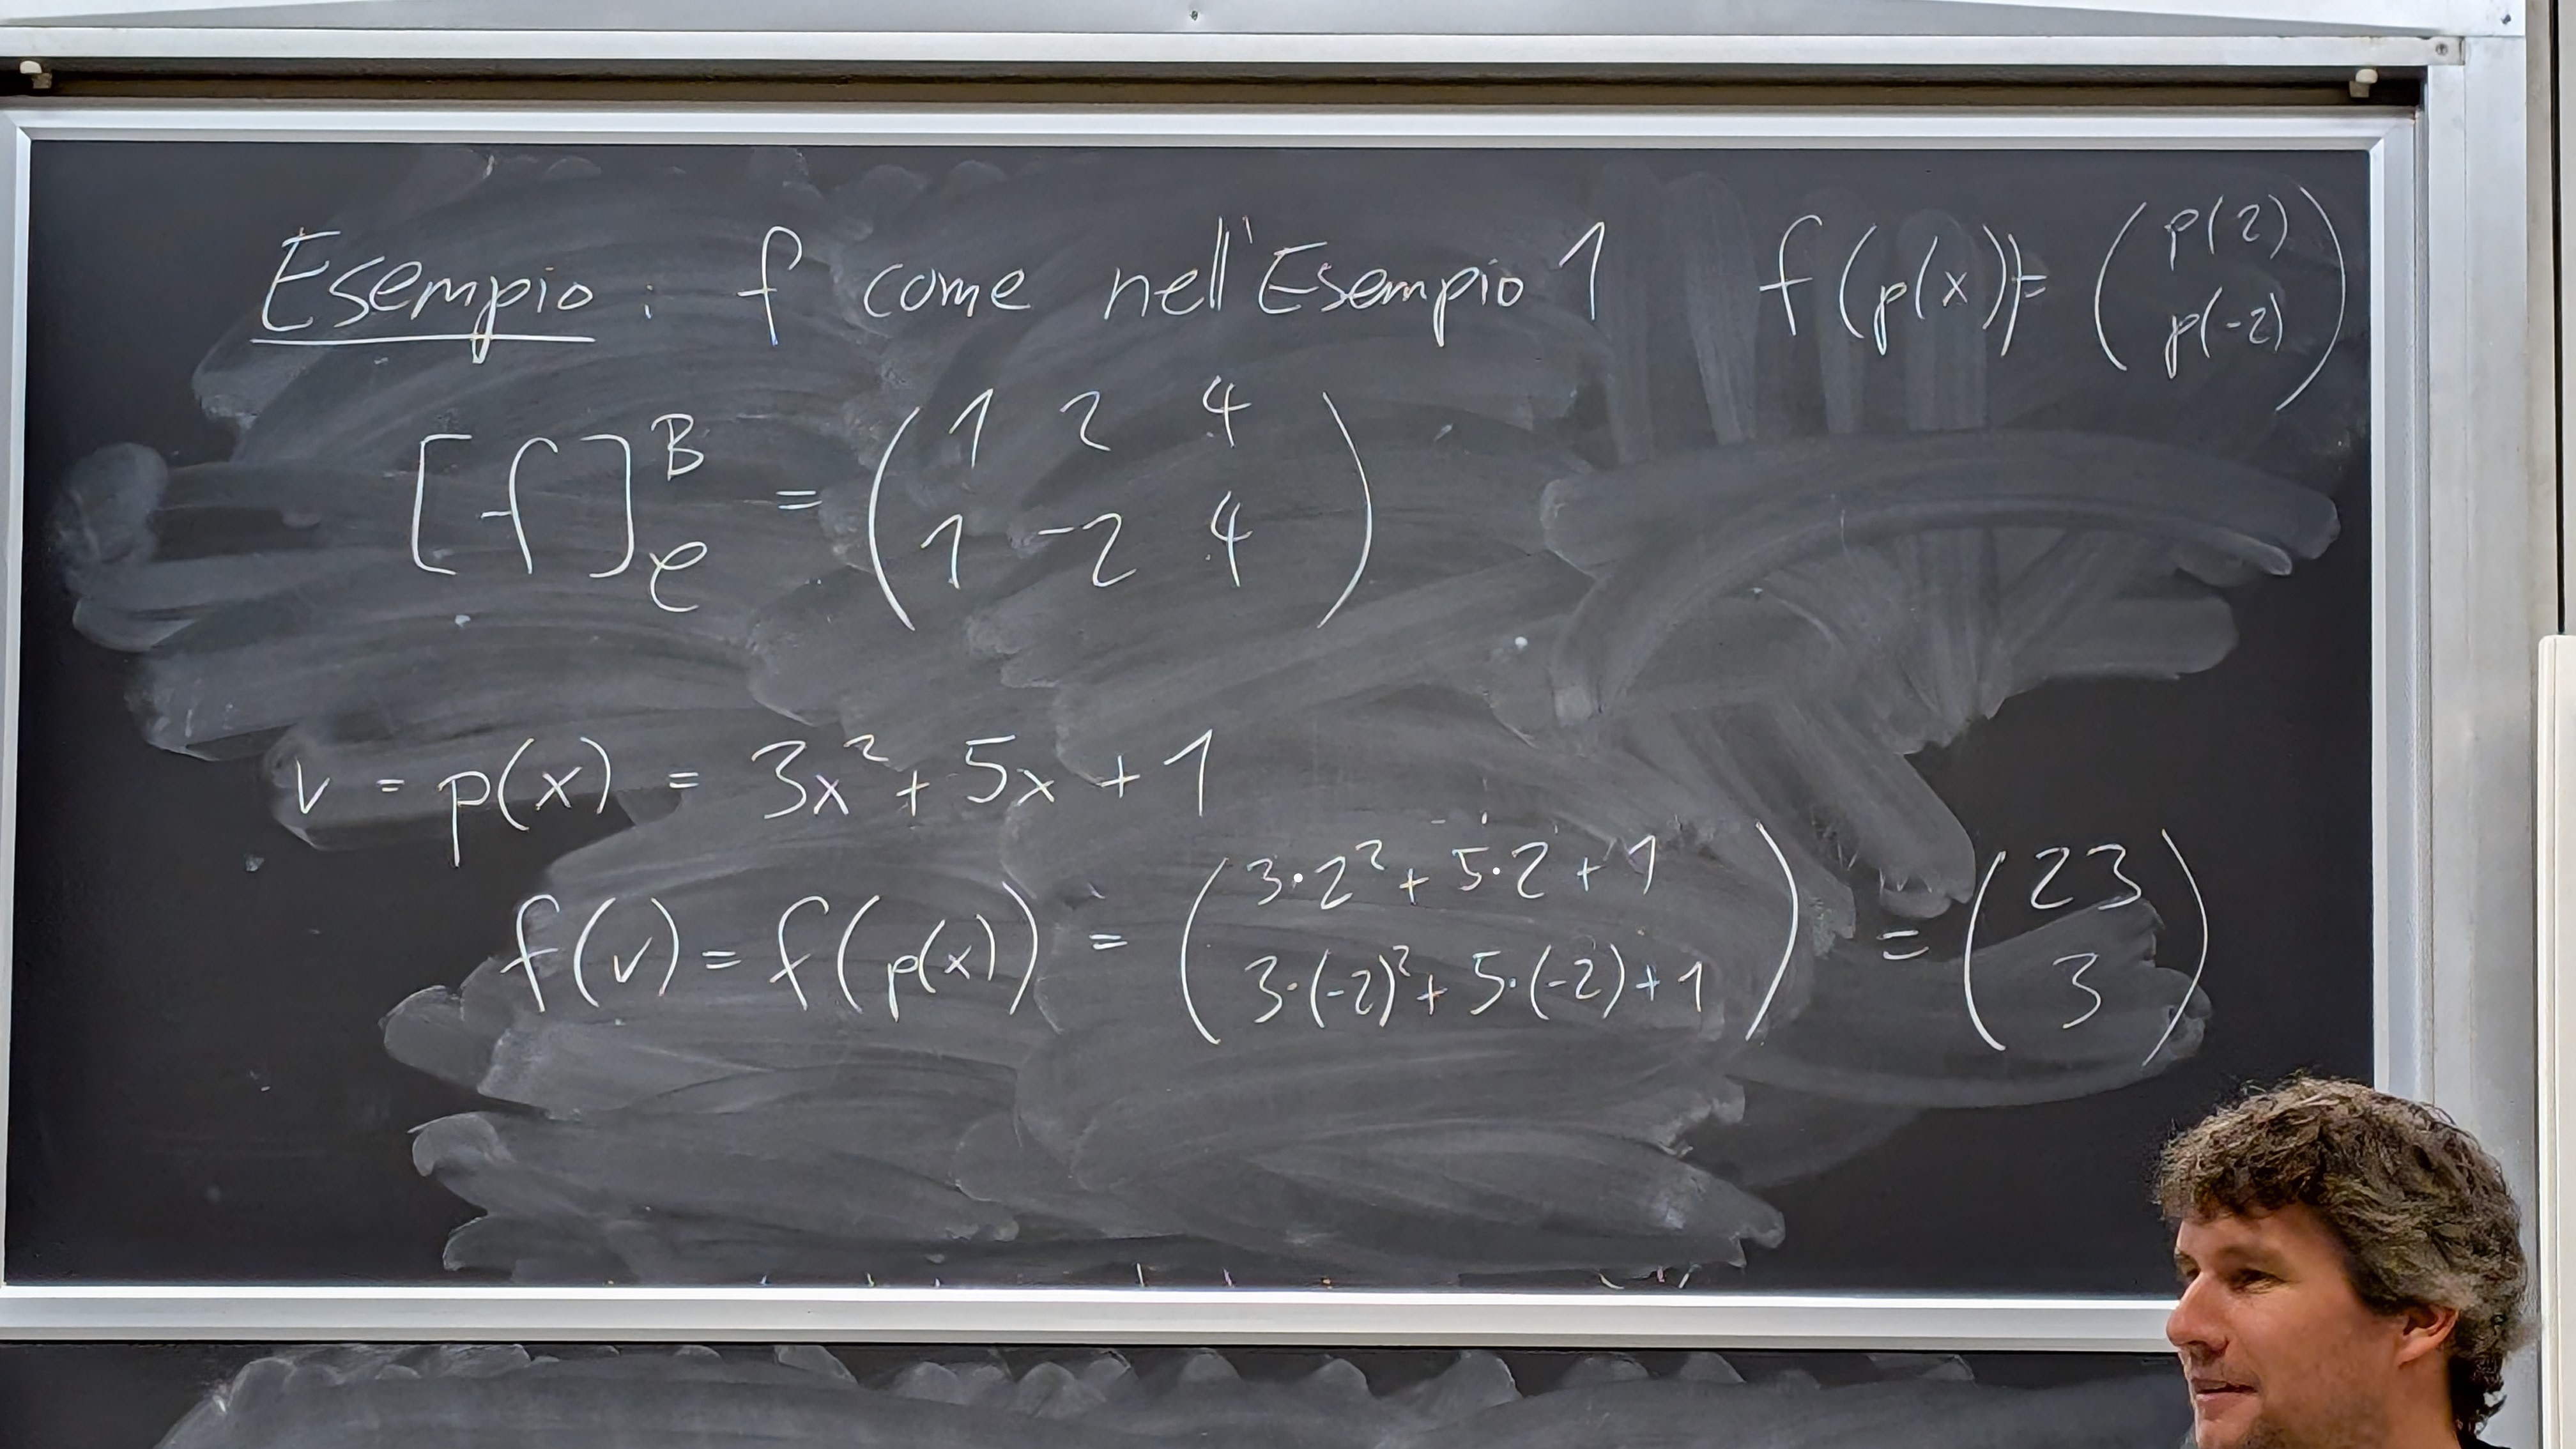 Esempio : f come nell'Esempio 1 f(p(x)) = (p(2) p(-2))
[f]^B_e = (1 2 4
1 -2 4)
v = p(x) = 3x² + 5x + 1
f(v) = f(p(x)) = (3·2² + 5·2 + 1
3·(-2)² + 5·(-2) + 1) = (23
3)